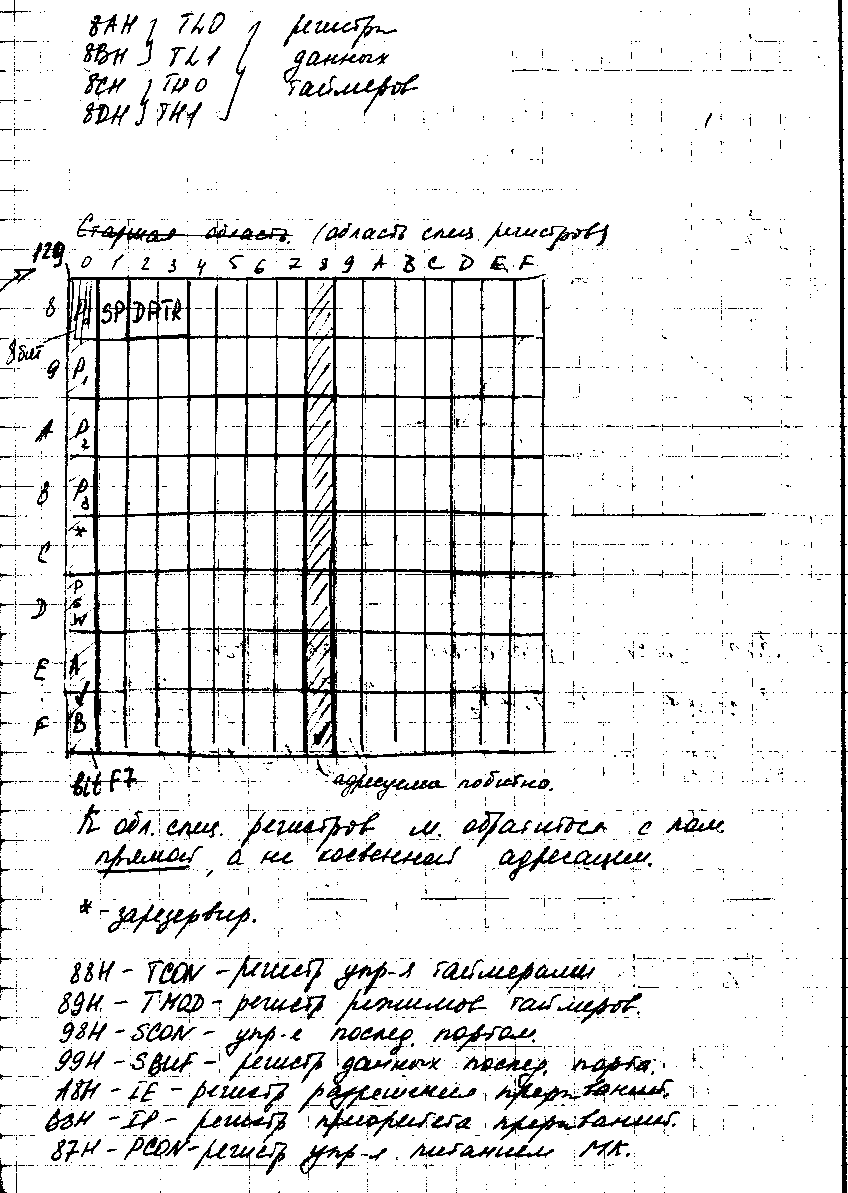 8AH } TL0 } регистры
8BH } TL1 } данных
8CH } TH0 } таймеров
8DH } TH1
Старшая область. (область спец. регистров)
129
0 1 2 3 4 5 6 7 8 9 A B C D E F
8 P0 SP DPTR
8 бит
9 P1
A P2
B P3
*
C
D PSW
E A
F B
bit F7
адресуема побитно.
К обл. спец. регистров м. обратиться с пом.
прямой, а не косвенной адресации.
* - зарезервир.
88H - TCON - регистр упр-я таймерами
89H - TMOD - регистр режимов таймеров.
98H - SCON - упр-е послед. портом.
99H - SBUF - регистр данных послед. порта.
A8H - IE - регистр разрешения прерываний.
B8H - IP - регистр приоритета прерываний.
87H - PCON - регистр упр-я питанием МК.